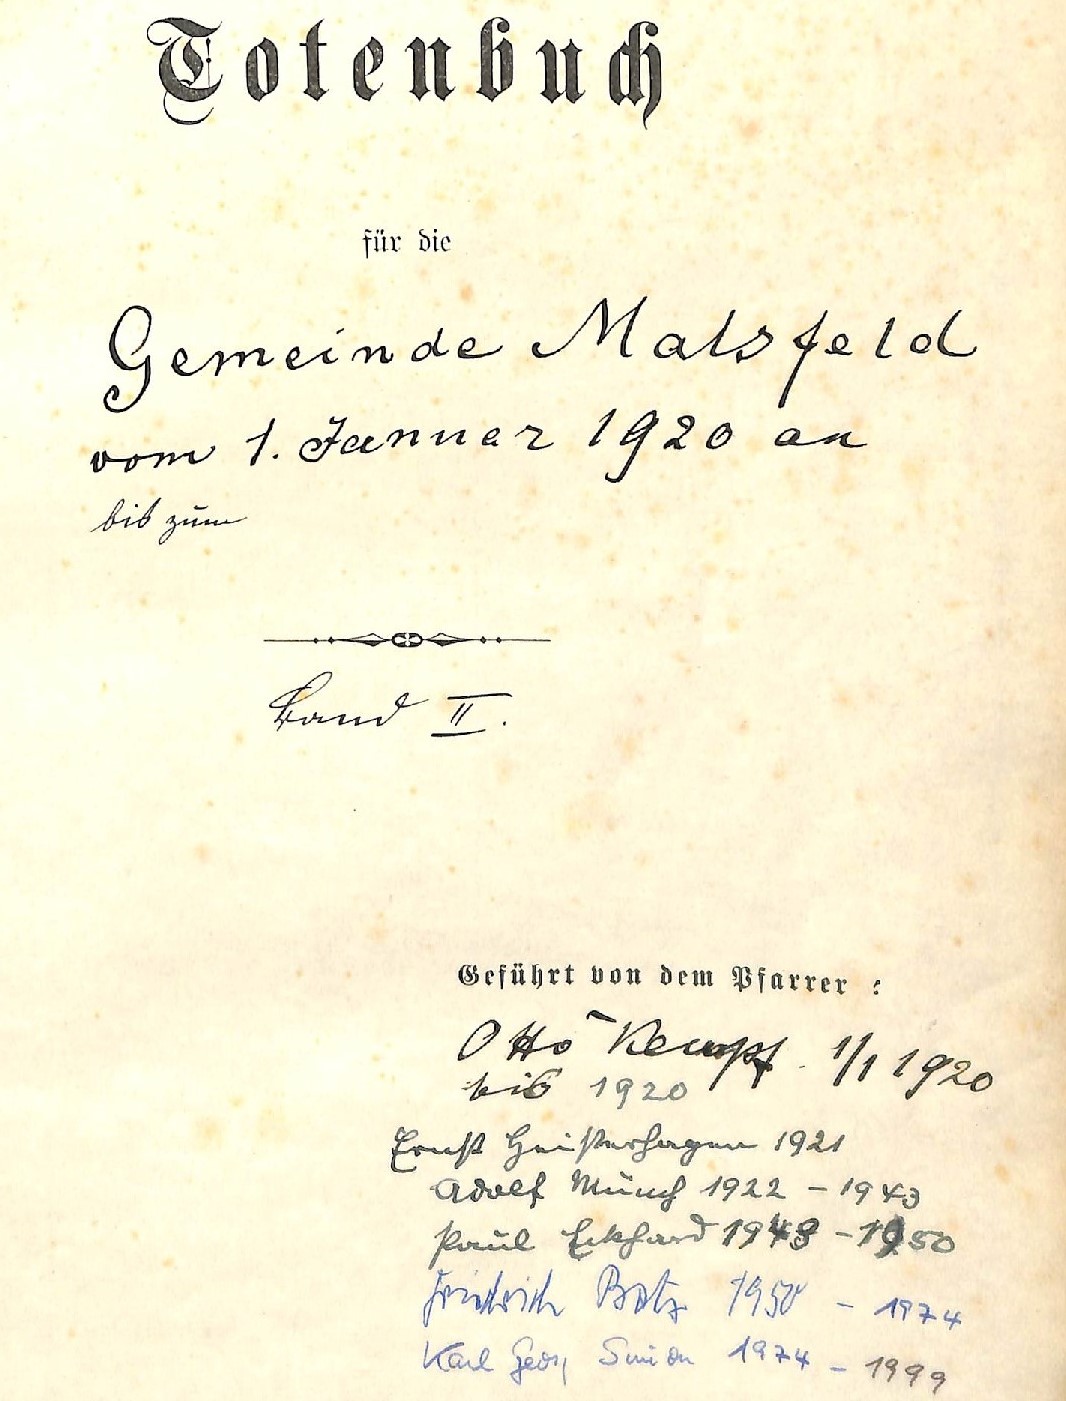 Totenbuch
für die
Gemeinde Malsfeld
vom 1. Januar 1920 an
bis zum
Band II.
Geführt von dem Pfarrer :
Otto Kempf 1/1 1920
bis 1920
Ernst Heisterhagen 1921
Adolf Münch 1922 - 1943
Paul Eckhard 1948 - 1950
Friedrich Botz 1950 - 1974
Karl Georg Simon 1974 - 1999